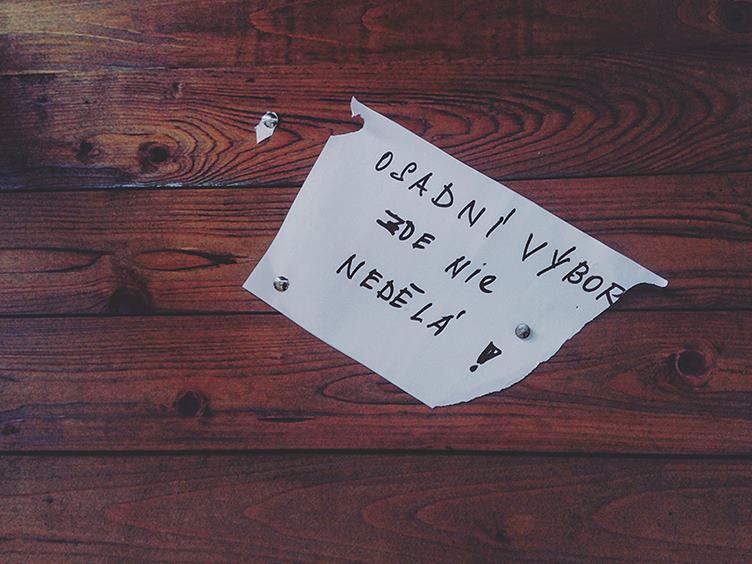 OSADNÍ VÝBOR
ZDE NIC
NEDĚLÁ !